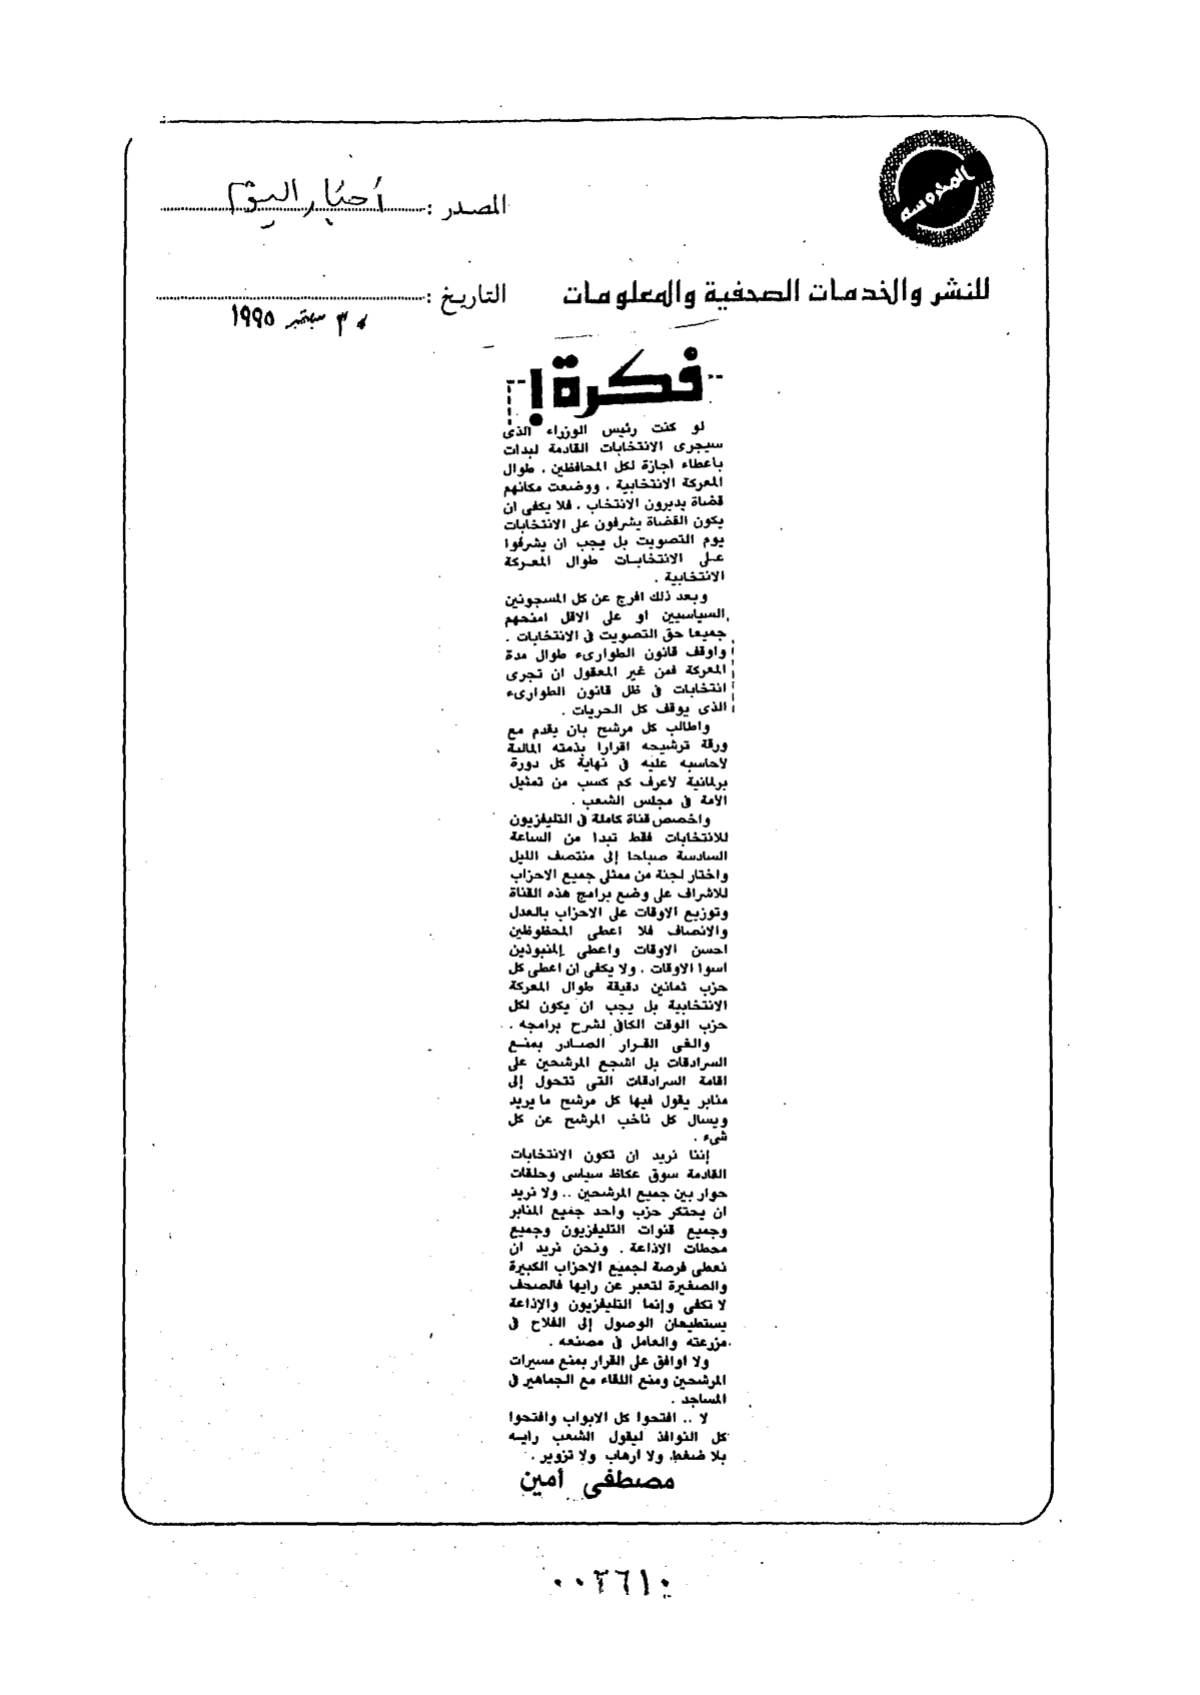 المحروسة
المصدر : أخبار اليوم
للنشر والخدمات الصحفية والمعلومات
التاريخ :
٣٠ سبتمبر ١٩٩٥
فكرة !
لو كنت رئيس الوزراء الذى
سيجرى الانتخابات القادمة لبدات
باعطاء اجازة لكل المحافظين ، طوال
المعركة الانتخابية ، ووضعت مكانهم
قضاة يديرون الانتخاب ، فلا يكفى ان
يكون القضاة يشرفون على الانتخابات
يوم التصويت بل يجب ان يشرفوا
على الانتخابات طوال المعركة
الانتخابية .
وبعد ذلك افرج عن كل المسجونين
السياسيين او على الاقل امنحهم
جميعا حق التصويت فى الانتخابات .
واوقف قانون الطوارىء طوال مدة
المعركة فمن غير المعقول ان تجرى
انتخابات فى ظل قانون الطوارىء
الذى يوقف كل الحريات .
واطالب كل مرشح بان يقدم مع
ورقة ترشيحه اقرارا بذمته المالية
لاحاسبه عليه فى نهاية كل دورة
برلمانية لاعرف كم كسب من تمثيل
الامة فى مجلس الشعب .
واخصص قناة كاملة فى التليفزيون
للانتخابات فقط تبدا من الساعة
السادسة صباحا إلى منتصف الليل
واختار لجنة من ممثلى جميع الاحزاب
للاشراف على وضع برامج هذه القناة
وتوزيع الاوقات على الاحزاب بالعدل
والانصاف فلا اعطى المحظوظين
احسن الاوقات واعطى المنبوذين
اسوا الاوقات ، ولا يكفى ان اعطى كل
حزب ثمانين دقيقة طوال المعركة
الانتخابية بل يجب ان يكون لكل
حزب الوقت الكافى لشرح برامجه .
والغى القرار الصادر بمنع
السرادقات بل اشجع المرشحين على
اقامة السرادقات التى تتحول إلى
منابر يقول فيها كل مرشح ما يريد
ويسال كل ناخب المرشح عن كل
شىء .
إننا نريد ان تكون الانتخابات
القادمة سوق عكاظ سياسى وحلقات
حوار بين جميع المرشحين .. ولا نريد
ان يحتكر حزب واحد جميع المنابر
وجميع قنوات التليفزيون وجميع
محطات الاذاعة . ونحن نريد ان
نعطى فرصة لجميع الاحزاب الكبيرة
والصغيرة لتعبر عن رايها فالصحف
لا تكفى وإنما التليفزيون والإذاعة
يستطيعان الوصول إلى الفلاح فى
مزرعته والعامل فى مصنعه .
ولا اوافق على القرار بمنع مسيرات
المرشحين ومنع اللقاء مع الجماهير فى
المساجد .
لا .. افتحوا كل الابواب وافتحوا
كل النوافذ ليقول الشعب رايه
بلا ضغط ولا ارهاب ولا تزوير .
مصطفى أمين
٠٠٢٦١٠